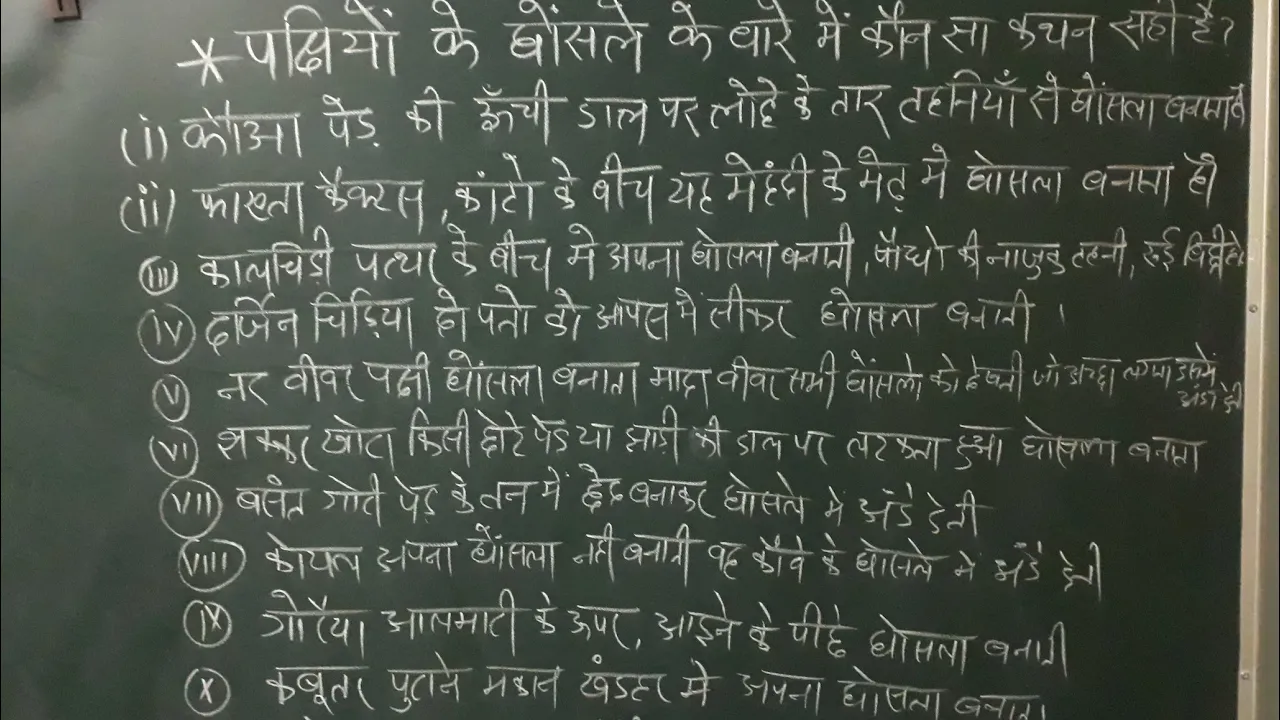 * पक्षियों के घोंसले के बारे में कौन सा कथन सही है?
(i) कौआ पेड़ की ऊँची डाल पर लोहे के तार टहनियाँ से घोंसला बनाता है
(ii) फाख्ता कैक्टस, कांटो के बीच यह मेहंदी के मेढ़ मे घोसला बनाता है
(iii) कालचिड़ी पत्थर के बीच मे अपना घोसला बनाती, पौधो की नाजुक टहनी, रूई
(iv) दर्जिन चिड़िया दो पत्तो को आपस में सीकर घोसला बनाती ।
(v) नर वीवर पक्षी घोंसला बनाता मादा वीवर सभी घोंसलो को देखती जो अच्छा लगता उसमें
अंडा देती
(vi) शक्कर खोटा किसी छोटे पेड़ या झाड़ी की डाल पर लटकता हुआ घोसला बनाता
(vii) बसंत गौरी पेड़ के तन में छेद बनाकर घोसले मे अंडे देती
(viiii) कोयल अपना घोंसला नही बनाती वह कौवे के घोसले मे अंडे देती
(ix) गोरैया आलमारी के ऊपर, आइने के पीछे घोसला बनाती
(x) कबूतर पुराने मकान खंडहर मे अपना घोसला बनाता।